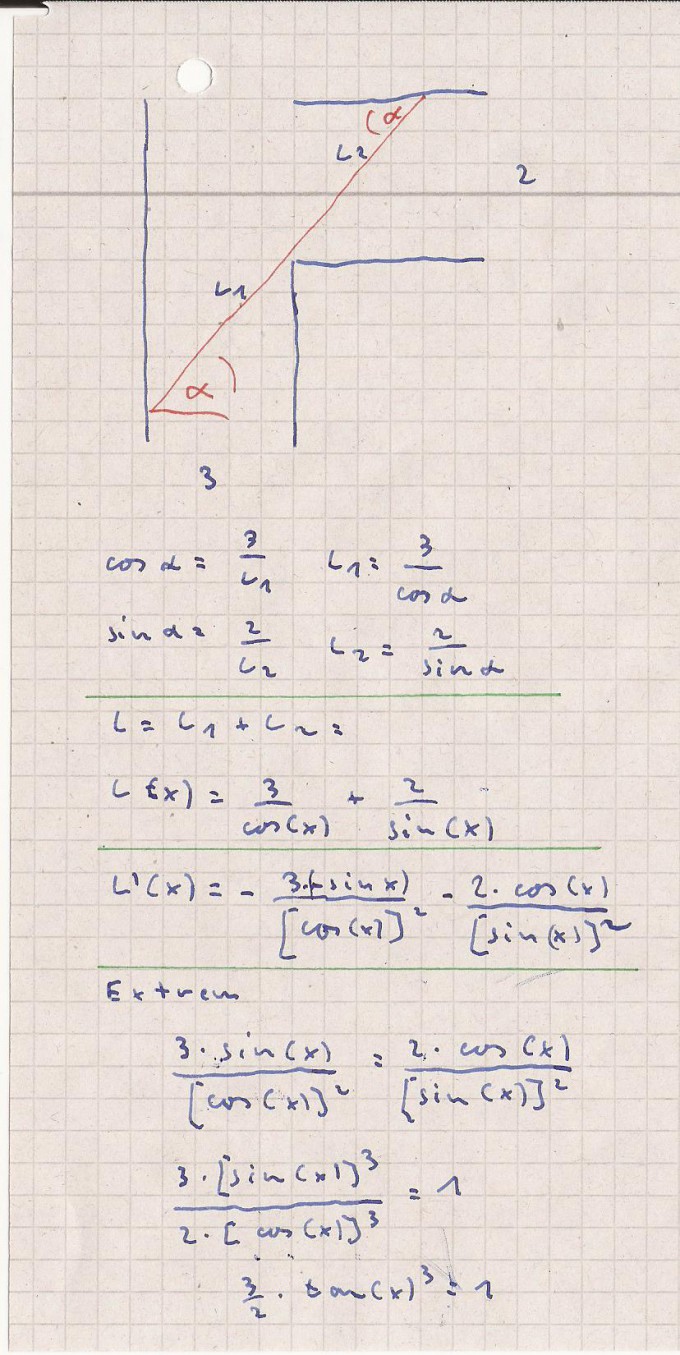 α
L2
2
L1
α
3
cos α = 3/L1    L1 = 3/cos α
sin α = 2/L2    L2 = 2/sin α
L = L1 + L2 =
L(x) = 3/cos(x) + 2/sin(x)
L'(x) = - 3·(-sin x)/[cos(x)]² - 2·cos(x)/[sin(x)]²
Extrem
3·sin(x)/[cos(x)]² = 2·cos(x)/[sin(x)]²
3·[sin(x)]³/2·[cos(x)]³ = 1
3/2 · tan(x)³ = 1